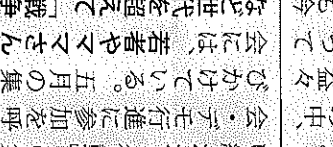 会・デモ行進に参加を呼
びかけている。五月の集
会には、若者やママさん
など世代を超えて「戦争
中、
益々
って
も今